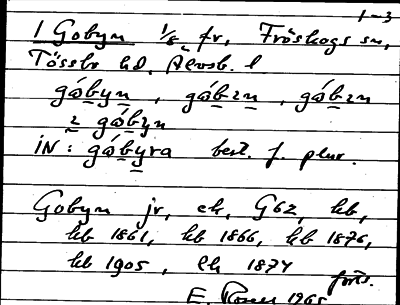 1-3
1 Gobyn 1/8 fr, Fröskogs sn,
Tössbo hd, Älvsb. l
gåbyn, gåbın, gåbın
2 gåbyn
iN: gåbyra best. f. plur.
Gobyn jr, ek, G62, kb,
kb 1861, kb 1866, kb 1876,
kb 1905, ek 1874
forts.
E. 1965